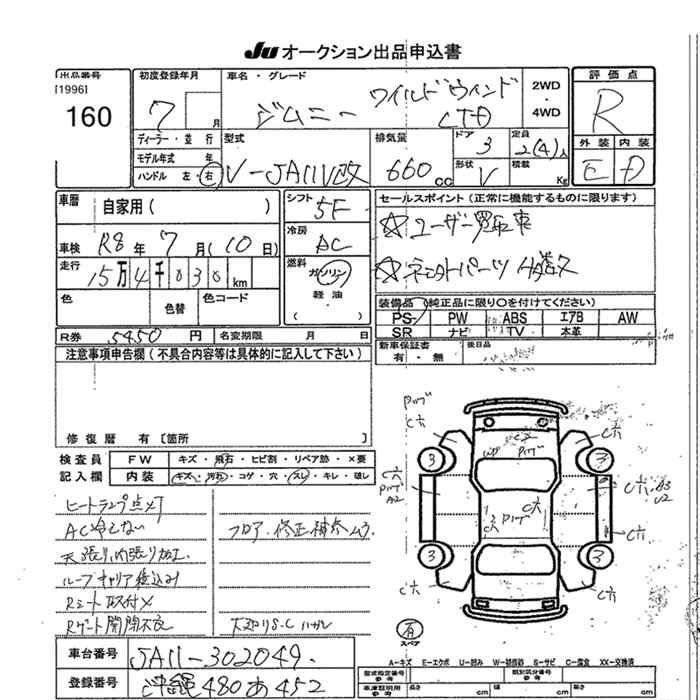 JU オークション出品申込書
出品番号
[1996]
160
初度登録年月
7 月
車名・グレード
ジムニー
ワイルドウィンド
LTD
2WD
・
4WD
評価点
R
外装 内装
E D
ディーラー・並行
モデル年式 年
ハンドル 左・右
型式
V-JA11V改
排気量
660 cc
ドア 3
形状 V
定員
2(4)人
積載
Kg
車歴 自家用( )
車検 R8年 7月(10日)
走行 15万4千030km
色
色替
色コード
シフト 5F
冷房 AC
燃料
ガソリン
軽油
( )
セールスポイント(正常に機能するものに限ります)
☆ユーザー買取車
装備品(純正品に限り○を付けてください)
PS PW ABS エアB AW
SR ナビ TV 本革
新車保証書
有・無
後日品
R券 5450円
名変期限 月 日
注意事項申告欄(不具合内容等は具体的に記入して下さい)
修復歴 有[箇所 ]
検査員
記入欄
FW キズ・飛石・ヒビ割・リペア跡・×要
内装 キズ・汚れ・コゲ・穴・スレ・キレ・破レ
ヒートランプ点灯
AC冷えない
天張り,内張り加工
ルーフキャリア積込み
Rシート取付×
Rゲート開閉不良
フロア.修正補修ムラ
下廻りS.Cハガレ
C穴
C穴
3
3
C穴
3
3
C穴
C穴
C穴
有
スペア
A-キズ E-エクボ U-凹み W-補修跡 S-サビ C-腐食 XX-交換済
車台番号 JA11-302049.
登録番号 沖縄480あ452
型式指定番号
参考
類別区分番号
参考
車庫証明用
参考
長さ cm
幅 cm
高さ cm